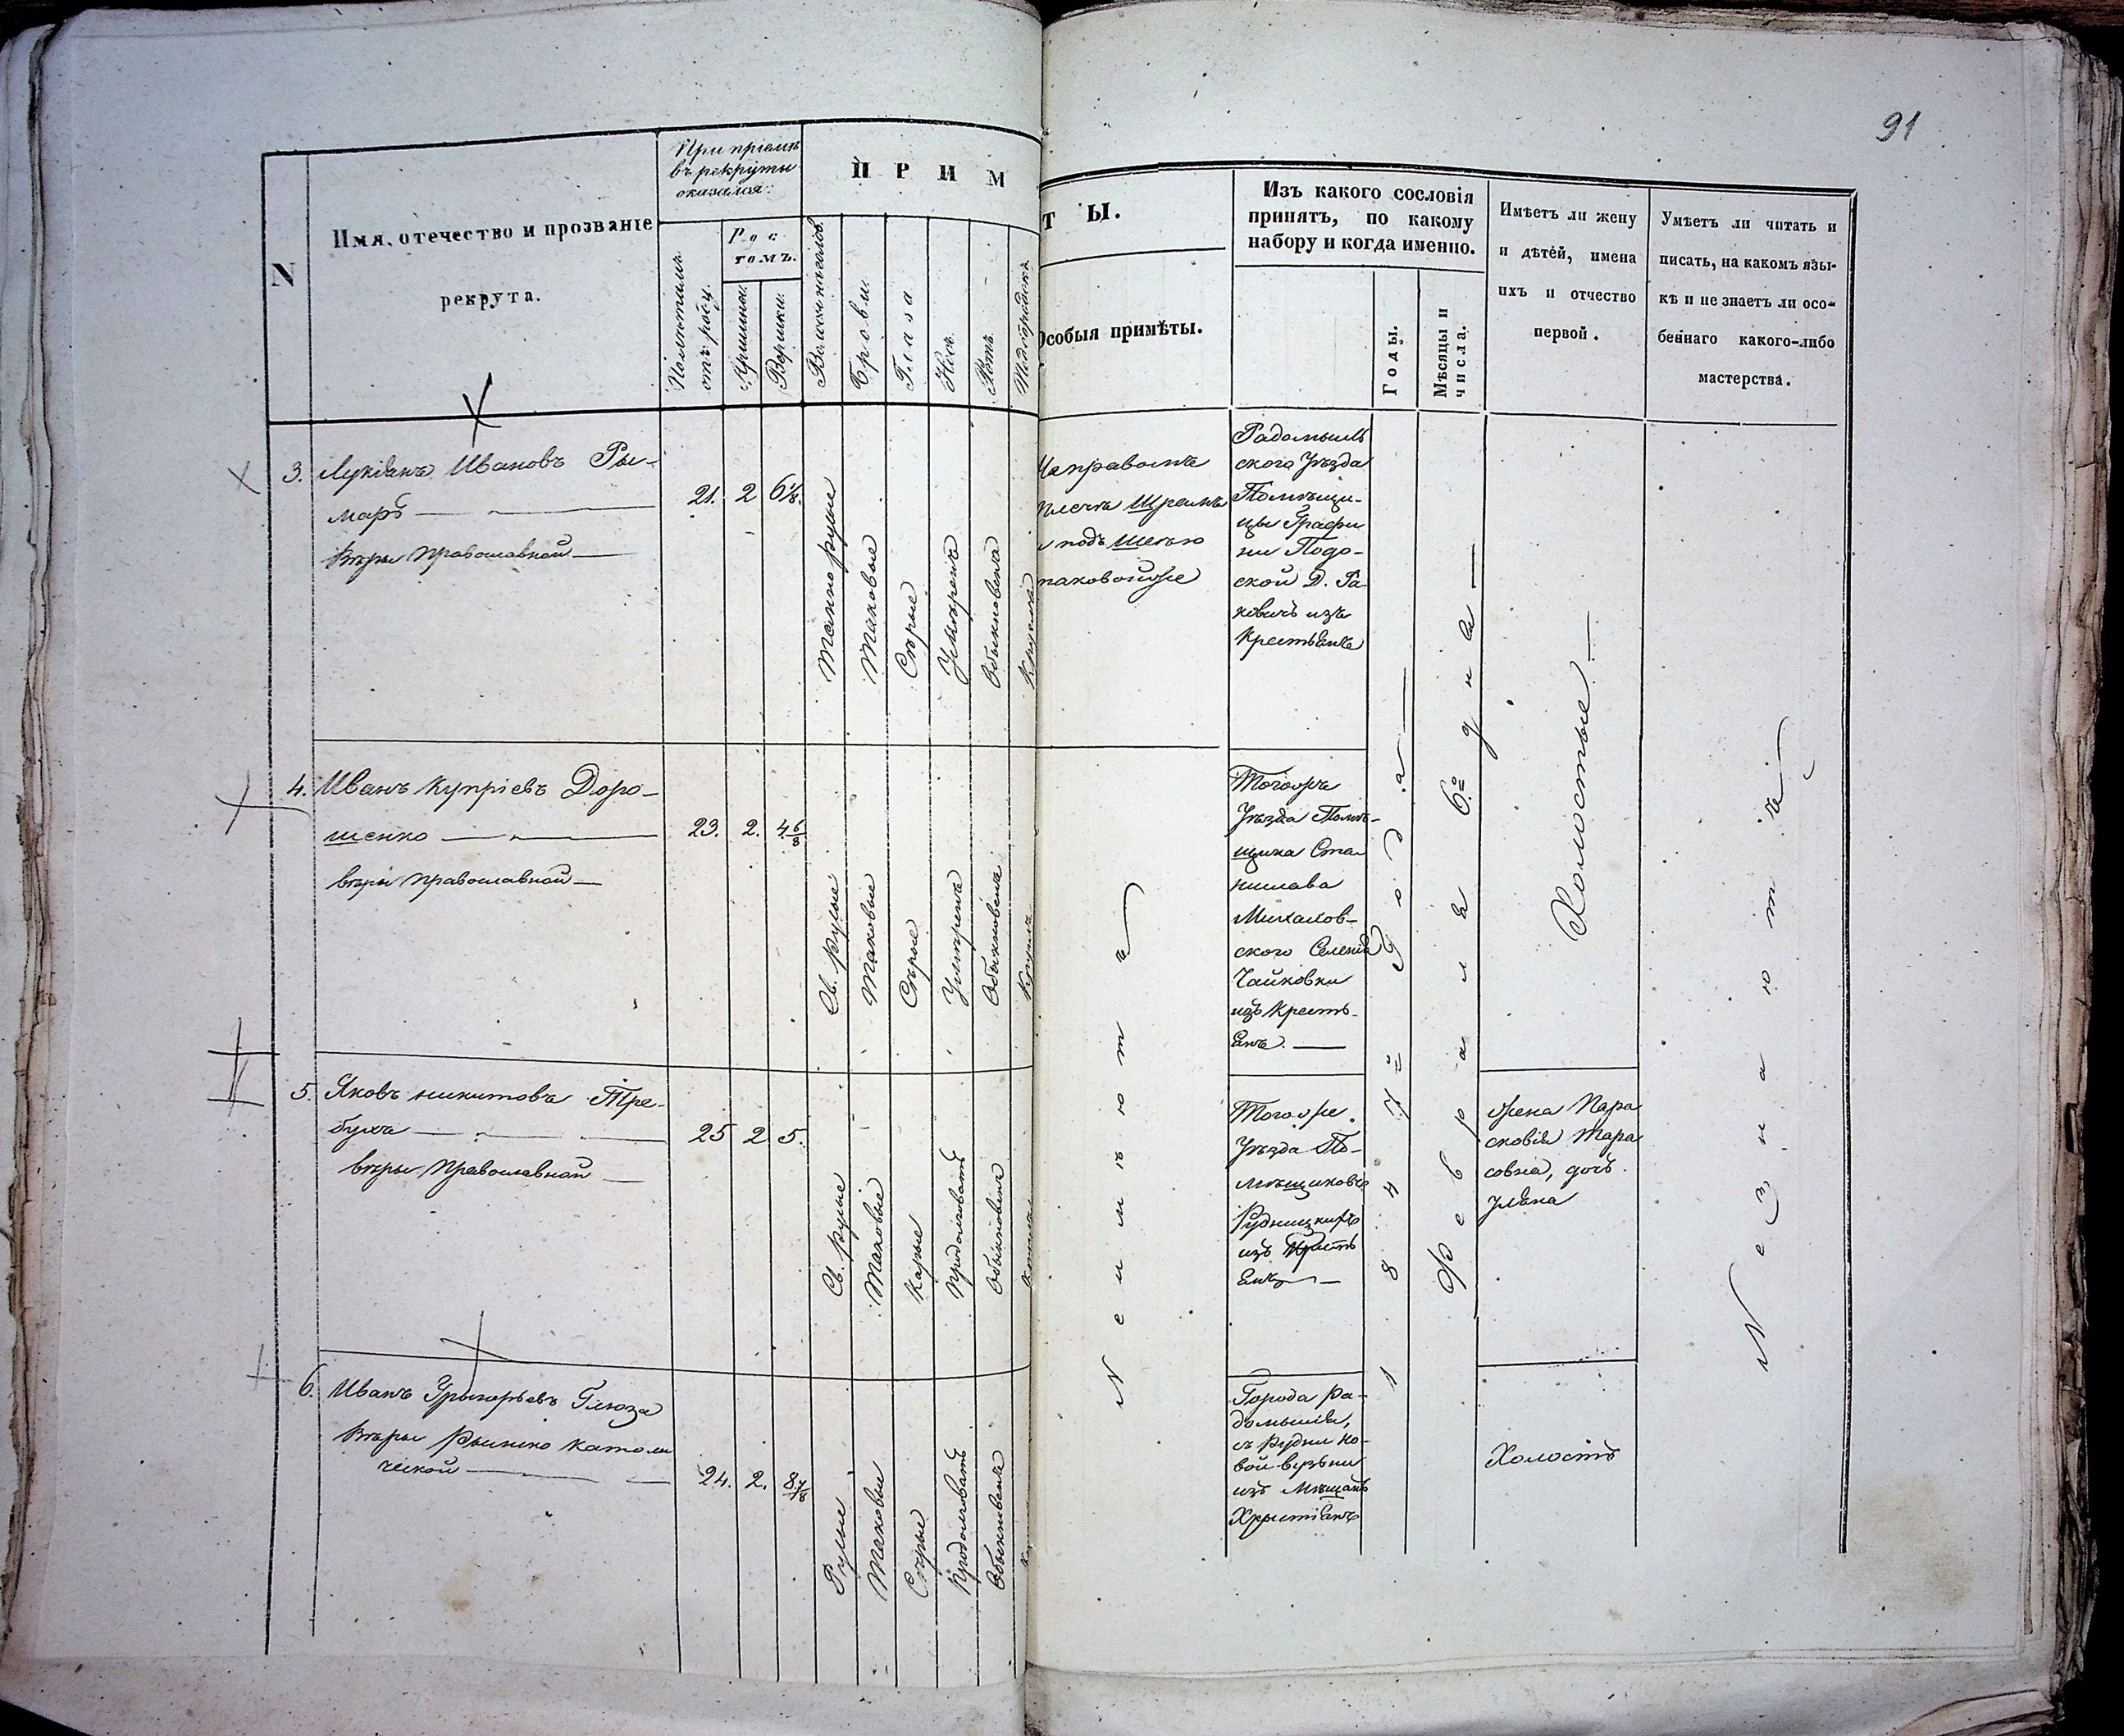 91
N
Имя, отечество и прозваніе
рекрута.
При пріемѣ
въ рекруты
оказался:
Полнотимъ
отъ роду.
Рос
томъ.
Аршины.
Вершки.
П Р И М
Волосы на голов.
Брови.
Глаза
Носъ.
Ротъ.
Подбородокъ
Т Ы.
Особыя примѣты.
Изъ какого сословія
принятъ, по какому
набору и когда именно.
Годы.
Мѣсяцы и
числа.
Имѣетъ ли жену
и дѣтей, имена
ихъ и отчество
первой.
Умѣетъ ли читать и
писать, на какомъ язы-
кѣ и не знаетъ ли осо-
беннаго какого-либо
мастерства.
3. Лукіянъ Ивановъ Ры-
маръ
Вѣры Православной
21. 2 6 1/8.
Темнорусые
Таковые
Сѣрые
Умѣренъ
Обыкновенъ
Круглой
На правомъ
плечѣ Шрамъ
и подъ Шеею
таковой же
Радомысль
скаго Уѣзда
Помѣщи-
цы Графи
ни
ской Д. Ра-
ковичъ изъ
Крестьянъ
4. Иванъ Купріевъ Доро-
шенко
вѣры Православной
23. 2. 4 6/8
Св. Русые
Таковые
Сѣрые
Умѣренъ
Обыкновенъ
Круглъ
Тогожъ
Уѣзда Помѣ-
щика Ста
нислава
Михалов-
ского Селенія
Чайковки
изъ Кресть-
янъ.
5. Яковъ Никитовъ Тре-
бухъ
вѣры Православной
25 2 5.
Св. Русые
Таковые
Карые
Продолговатъ
Обыкновенъ
Тогоже
Уѣзда По-
мѣщиковъ
Рудницкихъ
изъ Кресть
янъ
жена Пара
сковія Тара
совна, дочь
Уляна
6. Иванъ Григорьевъ Глюза
Вѣры Римско Католи
ческой
24. 2. 8 7/8
Русые
Таковыи
Сѣрые
Продолговатъ
Обыкновенъ
Города Ра-
домысля,
съ Рудни но-
вой
изъ Мѣщанъ
Христіянъ
Холостъ
Неимѣютъ
1847й Года
Февраля 6го дня
Холостые
Незнаютъ